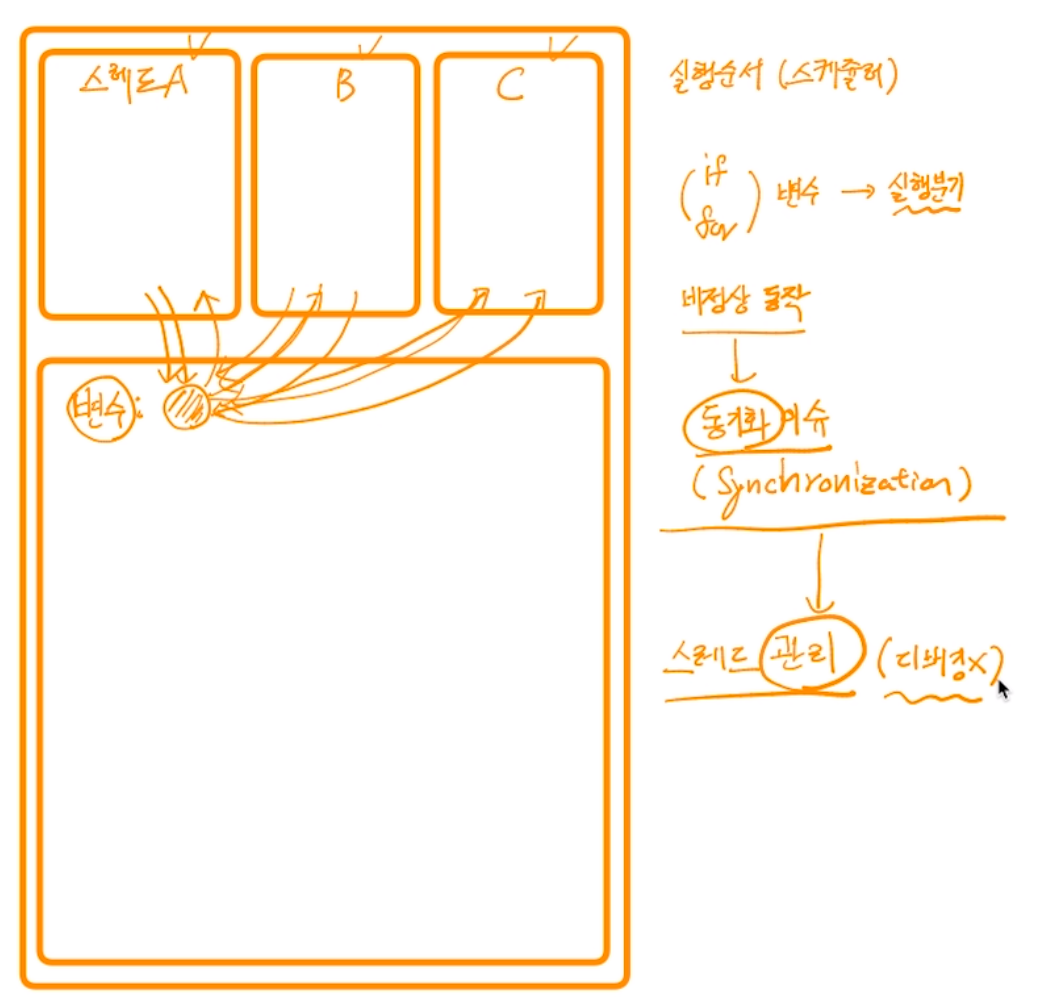 스레드A
B
C
변수:
실행순서 (스케쥴러)
(if
for) 변수 → 실행분기
비정상 동작
동기화 이슈
(Synchronization)
스레드 관리 (디버깅X)